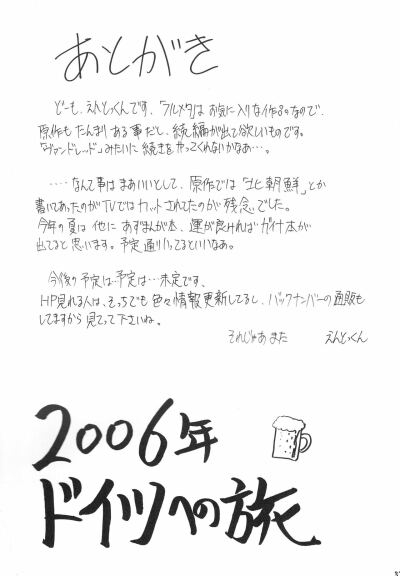 あとがき
どーも、えんとっくんです、「フルメタ」はお気に入りな作品なので、
原作もたんまりある事だし、続編が出て欲しいものです。
「ヴァンドレッド」みたいに続きをやってくれないかなあ…。
‥‥なんて事はまあいいとして、原作では「北朝鮮」とか
書いてあったのがTVではカットされてたのが残念でした。
今年の夏は他にあずまんが本、運が良ければガイナ本が
出てると思います。予定通りいってるといいなあ。
今後の予定は‥予定は…未定です、
HP見れる人は、そっちでも色々情報更新してるし、バックナンバーの通販も
してますから見てって下さいね。
それじゃあまた えんとっくん
2006年
ドイツへの旅